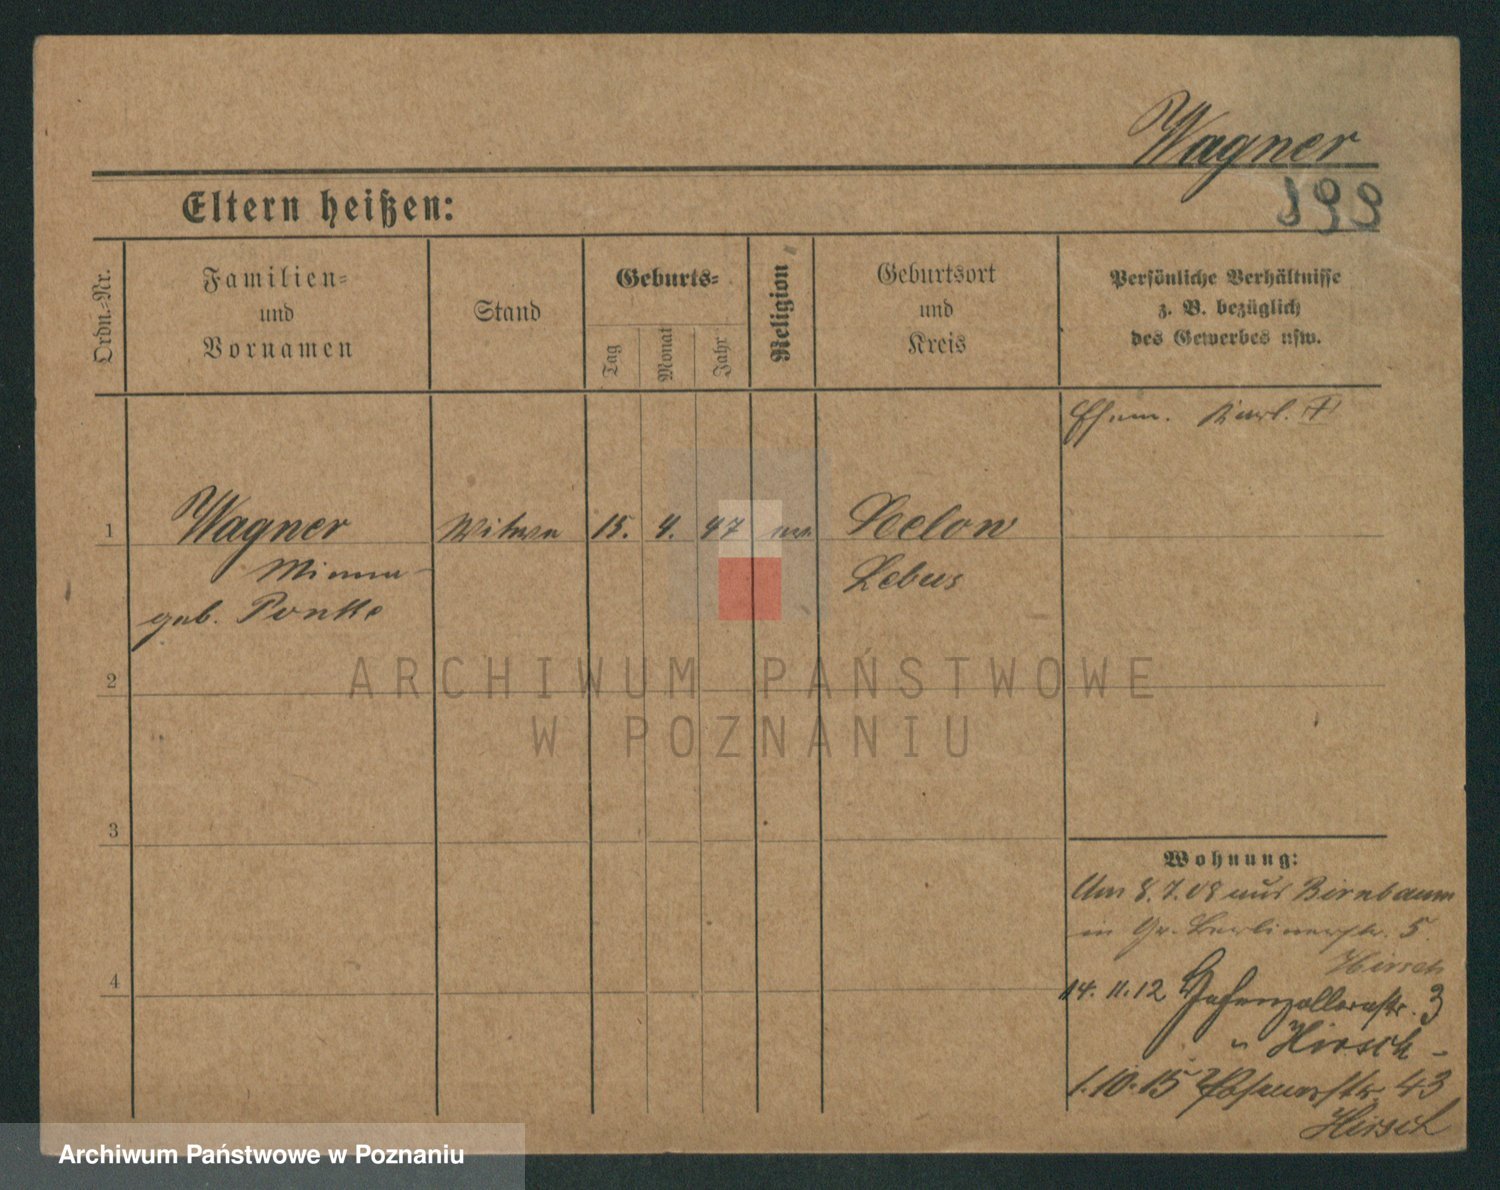 Wagner
898
Eltern heißen:
Ordn.-Nr.
Familien-
und
Vornamen
Stand
Geburts-
Tag
Monat
Jahr
Religion
Geburtsort
und
Kreis
Persönliche Verhältnisse
z. B. bezüglich
des Gewerbes usw.
Ehem. Karl. †
1
Wagner
Witwe
15.
4.
47
Selow
Minna
geb.
Lebus
ARCHIWUM PAŃSTWOWE
2
W POZNANIU
3
Wohnung:
Um 8.7.08 aus Birnbaum
in Gr. Berlinerstr. 5.
Hirsch
4
14.11.12 Hohenzollernstr. 3
Hirsch
1.10.15 Posenerstr. 43
Hirsch
Archiwum Państwowe w Poznaniu